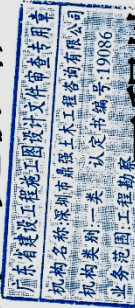 广东省建设工程施工图设计文件审查专用章
机构名称:深圳市鼎强土木工程咨询有限公司
机构类别:一类 认定书编号:19086
业务范围:工程勘察